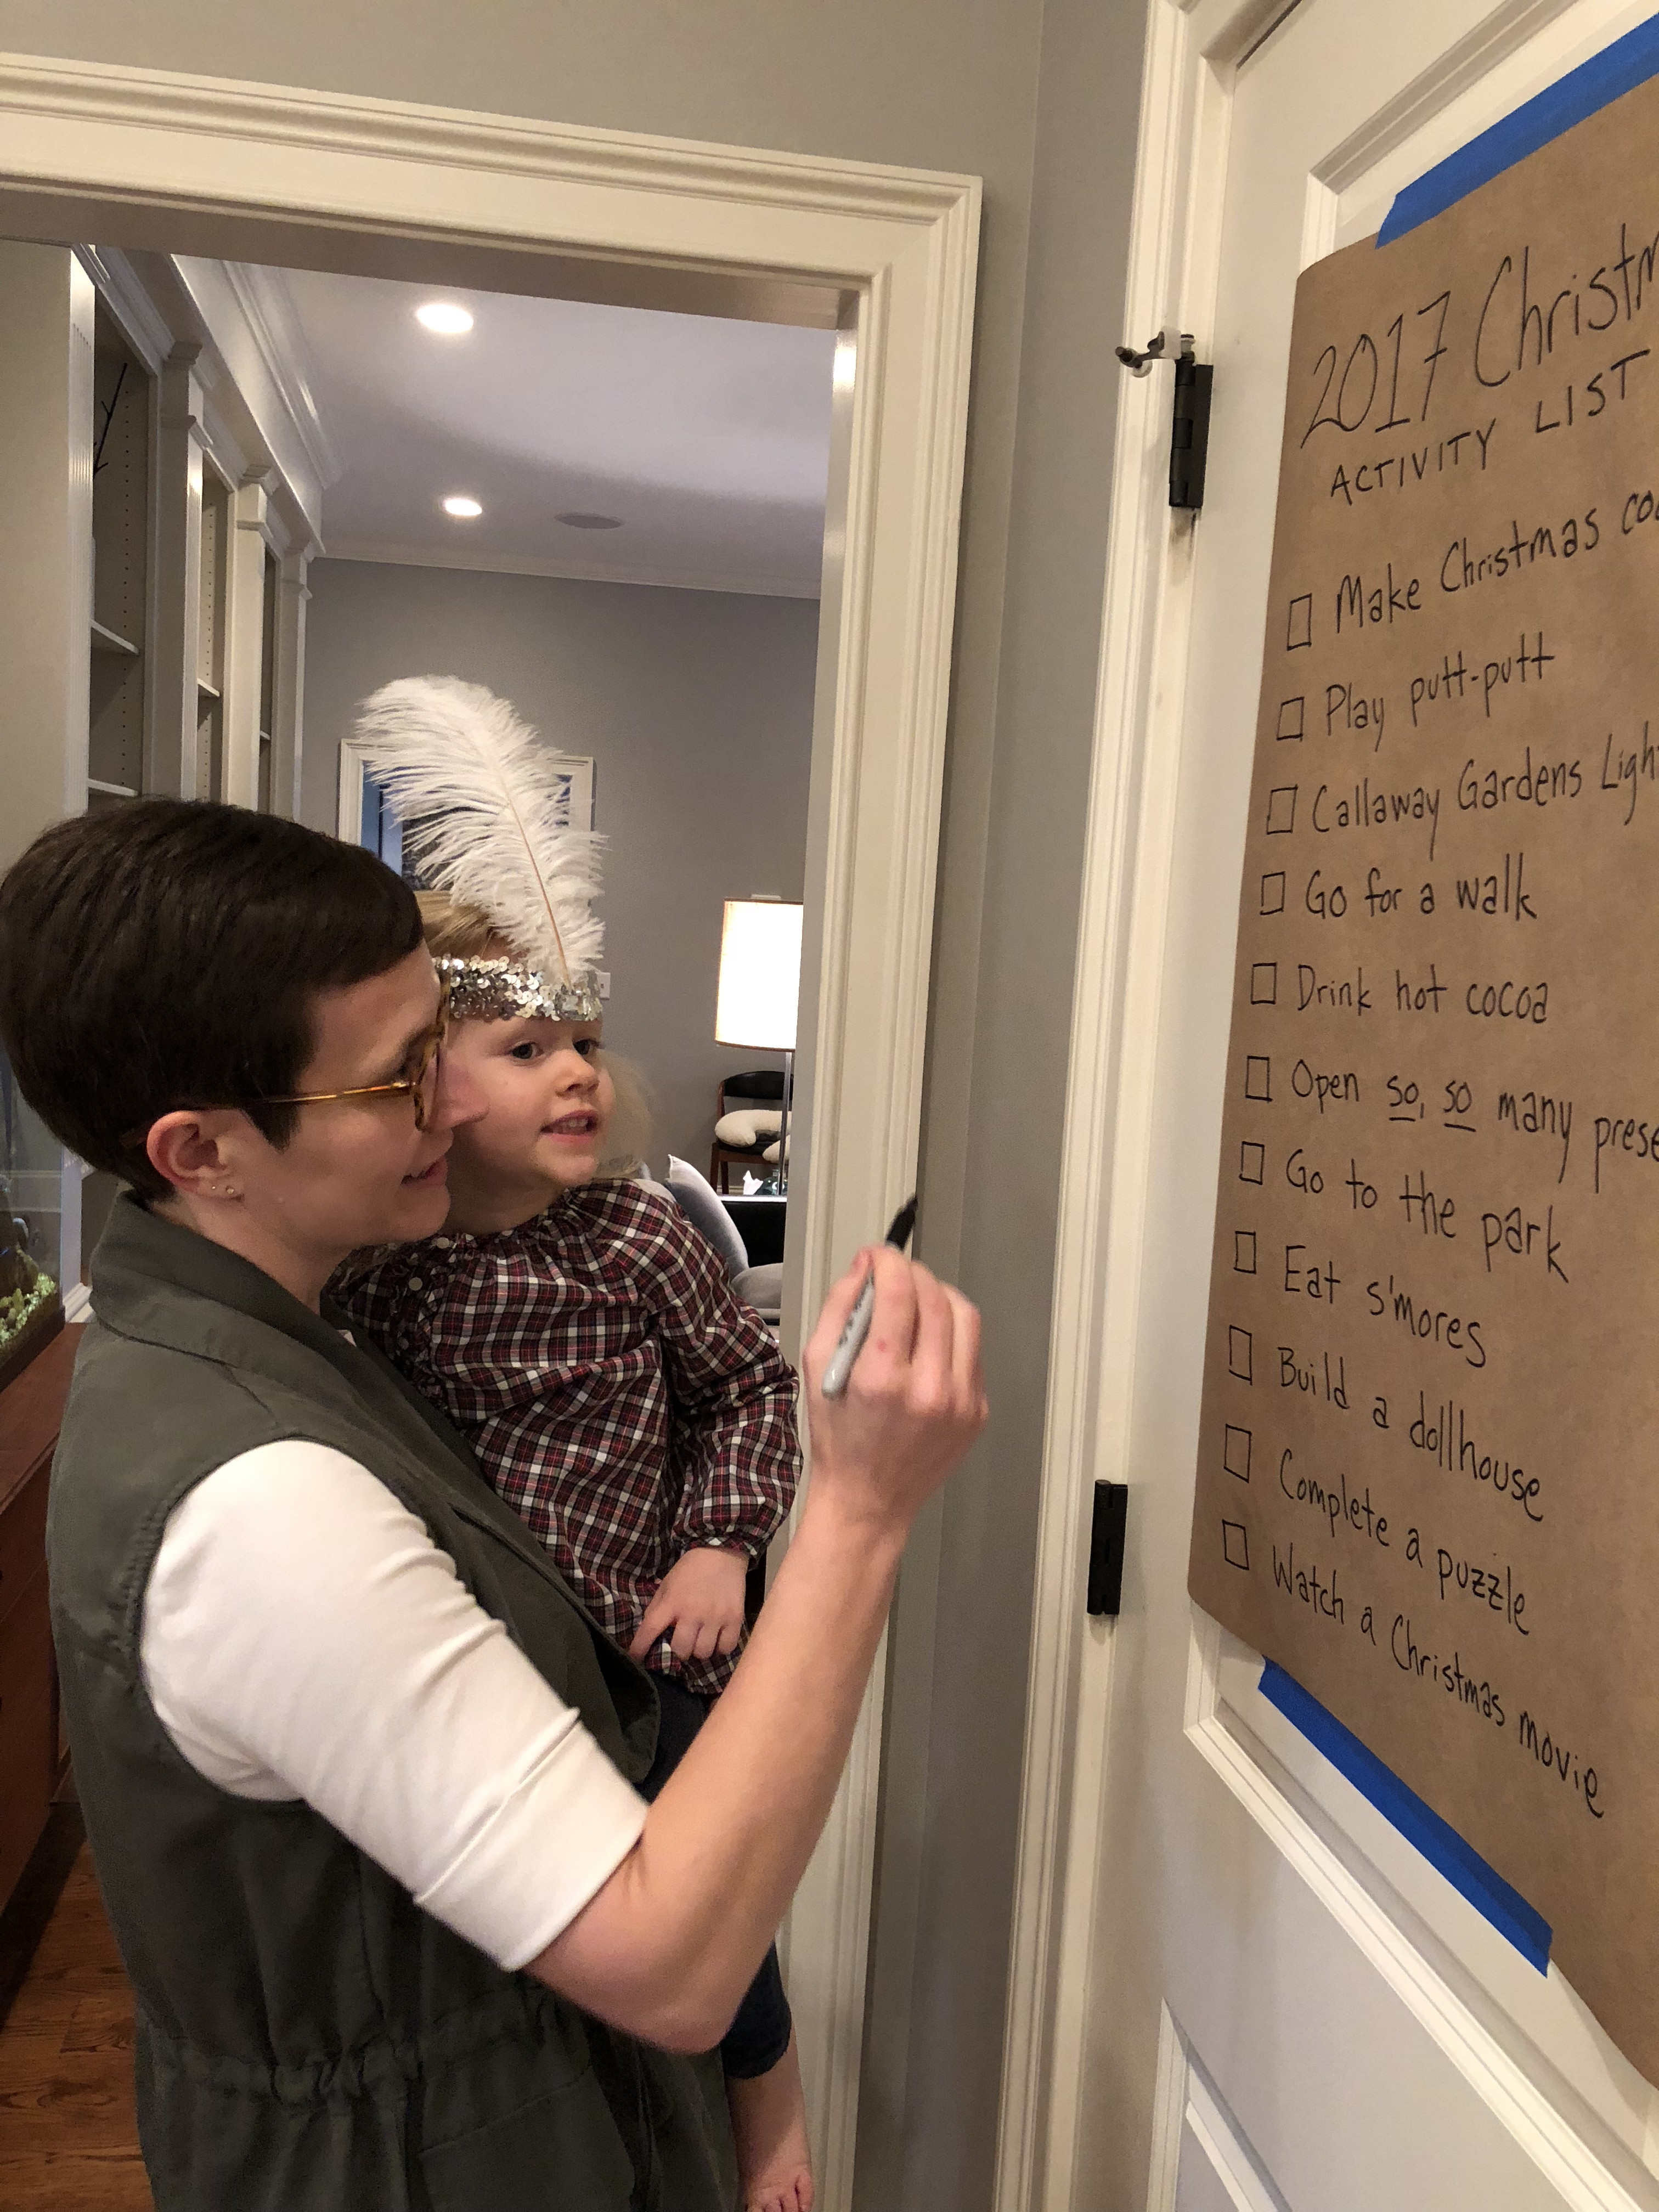 2017 Christm
ACTIVITY LIST
Make Christmas coo
Play putt-putt
Callaway Gardens Ligh
Go for a walk
Drink hot cocoa
Open so, so many prese
Go to the park
Eat s'mores
Build a dollhouse
Complete a puzzle
Watch a Christmas movie